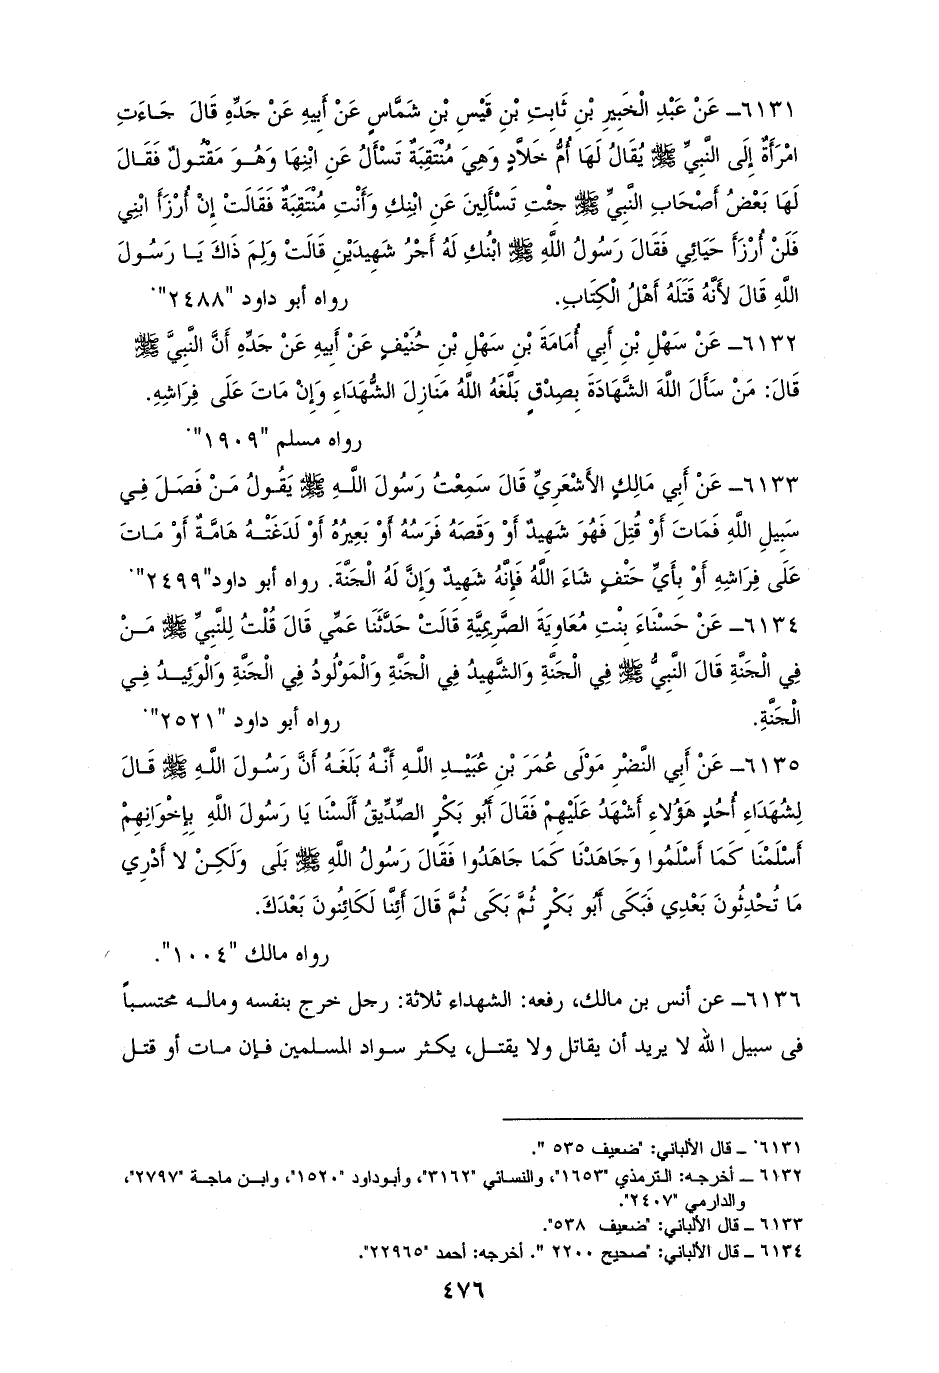 ٦١٣١ــ عَنْ عَبْدِ الْخَبِيرِ بْنِ ثَابِتِ بْنِ قَيْسِ بْنِ شَمَّاسٍ عَنْ أَبِيهِ عَنْ جَدِّهِ قَالَ جَاءَتِ
امْرَأَةٌ إِلَى النَّبِيِّ ﷺ يُقَالُ لَهَا أُمُّ خَلَّادٍ وَهِيَ مُنْتَقِبَةٌ تَسْأَلُ عَنِ ابْنِهَا وَهُوَ مَقْتُولٌ فَقَالَ
لَهَا بَعْضُ أَصْحَابِ النَّبِيِّ ﷺ جِئْتِ تَسْأَلِينَ عَنِ ابْنِكِ وَأَنْتِ مُنْتَقِبَةٌ فَقَالَتْ إِنْ أُرْزَأَ ابْنِي
فَلَنْ أُرْزَأَ حَيَائِي فَقَالَ رَسُولُ اللَّهِ ﷺ ابْنُكِ لَهُ أَجْرُ شَهِيدَيْنِ قَالَتْ وَلِمَ ذَاكَ يَا رَسُولَ
اللَّهِ قَالَ لأَنَّهُ قَتَلَهُ أَهْلُ الْكِتَابِ. رواه أبو داود "٢٤٨٨".
٦١٣٢ــ عَنْ سَهْلِ بْنِ أَبِي أُمَامَةَ بْنِ سَهْلِ بْنِ حُنَيْفٍ عَنْ أَبِيهِ عَنْ جَدِّهِ أَنَّ النَّبِيَّ ﷺ
قَالَ: مَنْ سَأَلَ اللَّهَ الشَّهَادَةَ بِصِدْقٍ بَلَّغَهُ اللَّهُ مَنَازِلَ الشُّهَدَاءِ وَإِنْ مَاتَ عَلَى فِرَاشِهِ.
رواه مسلم "١٩٠٩".
٦١٣٣ــ عَنْ أَبِي مَالِكٍ الأَشْعَرِيِّ قَالَ سَمِعْتُ رَسُولَ اللَّهِ ﷺ يَقُولُ مَنْ فَصَلَ فِي
سَبِيلِ اللَّهِ فَمَاتَ أَوْ قُتِلَ فَهُوَ شَهِيدٌ أَوْ وَقَصَهُ فَرَسُهُ أَوْ بَعِيرُهُ أَوْ لَدَغَتْهُ هَامَّةٌ أَوْ مَاتَ
عَلَى فِرَاشِهِ أَوْ بِأَيِّ حَتْفٍ شَاءَ اللَّهُ فَإِنَّهُ شَهِيدٌ وَإِنَّ لَهُ الْجَنَّةَ. رواه أبو داود"٢٤٩٩".
٦١٣٤ــ عَنْ حَسْنَاءَ بِنْتِ مُعَاوِيَةَ الصَّرِيمِيَّةِ قَالَتْ حَدَّثَنَا عَمِّي قَالَ قُلْتُ لِلنَّبِيِّ ﷺ مَنْ
فِي الْجَنَّةِ قَالَ النَّبِيُّ ﷺ فِي الْجَنَّةِ وَالشَّهِيدُ فِي الْجَنَّةِ وَالْمَوْلُودُ فِي الْجَنَّةِ وَالْوَئِيدُ فِي
الْجَنَّةِ. رواه أبو داود "٢٥٢١".
٦١٣٥ــ عَنْ أَبِي النَّضْرِ مَوْلَى عُمَرَ بْنِ عُبَيْدِ اللَّهِ أَنَّهُ بَلَغَهُ أَنَّ رَسُولَ اللَّهِ ﷺ قَالَ
لِشُهَدَاءِ أُحُدٍ هَؤُلَاءِ أَشْهَدُ عَلَيْهِمْ فَقَالَ أَبُو بَكْرٍ الصِّدِّيقُ أَلَسْنَا يَا رَسُولَ اللَّهِ بِإِخْوَانِهِمْ
أَسْلَمْنَا كَمَا أَسْلَمُوا وَجَاهَدْنَا كَمَا جَاهَدُوا فَقَالَ رَسُولُ اللَّهِ ﷺ بَلَى وَلَكِنْ لا أَدْرِي
مَا تُحْدِثُونَ بَعْدِي فَبَكَى أَبُو بَكْرٍ ثُمَّ بَكَى ثُمَّ قَالَ أَئِنَّا لَكَائِنُونَ بَعْدَكَ.
رواه مالك "١٠٠٤".
٦١٣٦ــ عن أنس بن مالك، رفعه: الشهداء ثلاثة: رجل خرج بنفسه وماله محتسباً
فى سبيل الله لا يريد أن يقاتل ولا يقتل، يكثر سواد المسلمين فإن مات أو قتل
٦١٣١ ــ قال الألباني: "ضعيف ٥٣٥ ".
٦١٣٢ ــ أخرجه: الترمذي "١٦٥٣"، والنسائي "٣١٦٢"، وأبوداود "١٥٢٠"، وابن ماجة "٢٧٩٧"،
والدارمي "٢٤٠٧".
٦١٣٣ ــ قال الألباني: "ضعيف ٥٣٨".
٦١٣٤ ــ قال الألباني: "صحيح ٢٢٠٠ ". أخرجه: أحمد "٢٢٩٦٥".
٤٧٦